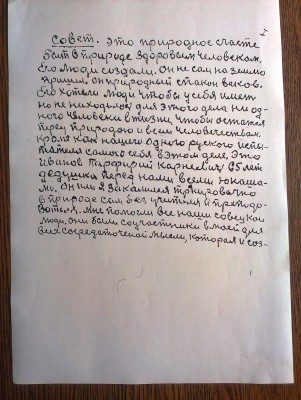 1
Совет. Это природное счастье
быть в природе здоровым человеком.
Его люди создали. Он не сам на землю
пришел. Он природный стакон веков.
Его хотели люди чтобы у себя иметь
но не находилось для этого дела ни од-
ного человека в жизни, чтобы остался
перед природою и всем человечеством.
кроме как нашего одного руского испы-
тателя самого себя в этом деле. Это
Иванов Парфирий Карнеевич, 65 лет
дедушка перед нами всеми юноша-
ми. Он или я закалился тренировочно
в природе сам без учителя и преподо-
вателя. Мне помогли все наши совецкои
люди, они были соучастники в моей для
всех сосредоточеной мысли, которая и соз-